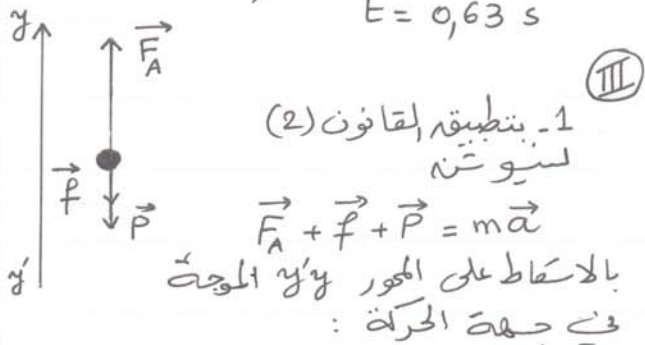 t = 0,63 s
III
1- بتطبيق القانون (2)
لنيوتن
F_A + f + P = ma
بالاسقاط على المحور y'y الموجة
في جهة الحركة :
y
F_A
f
P
y'